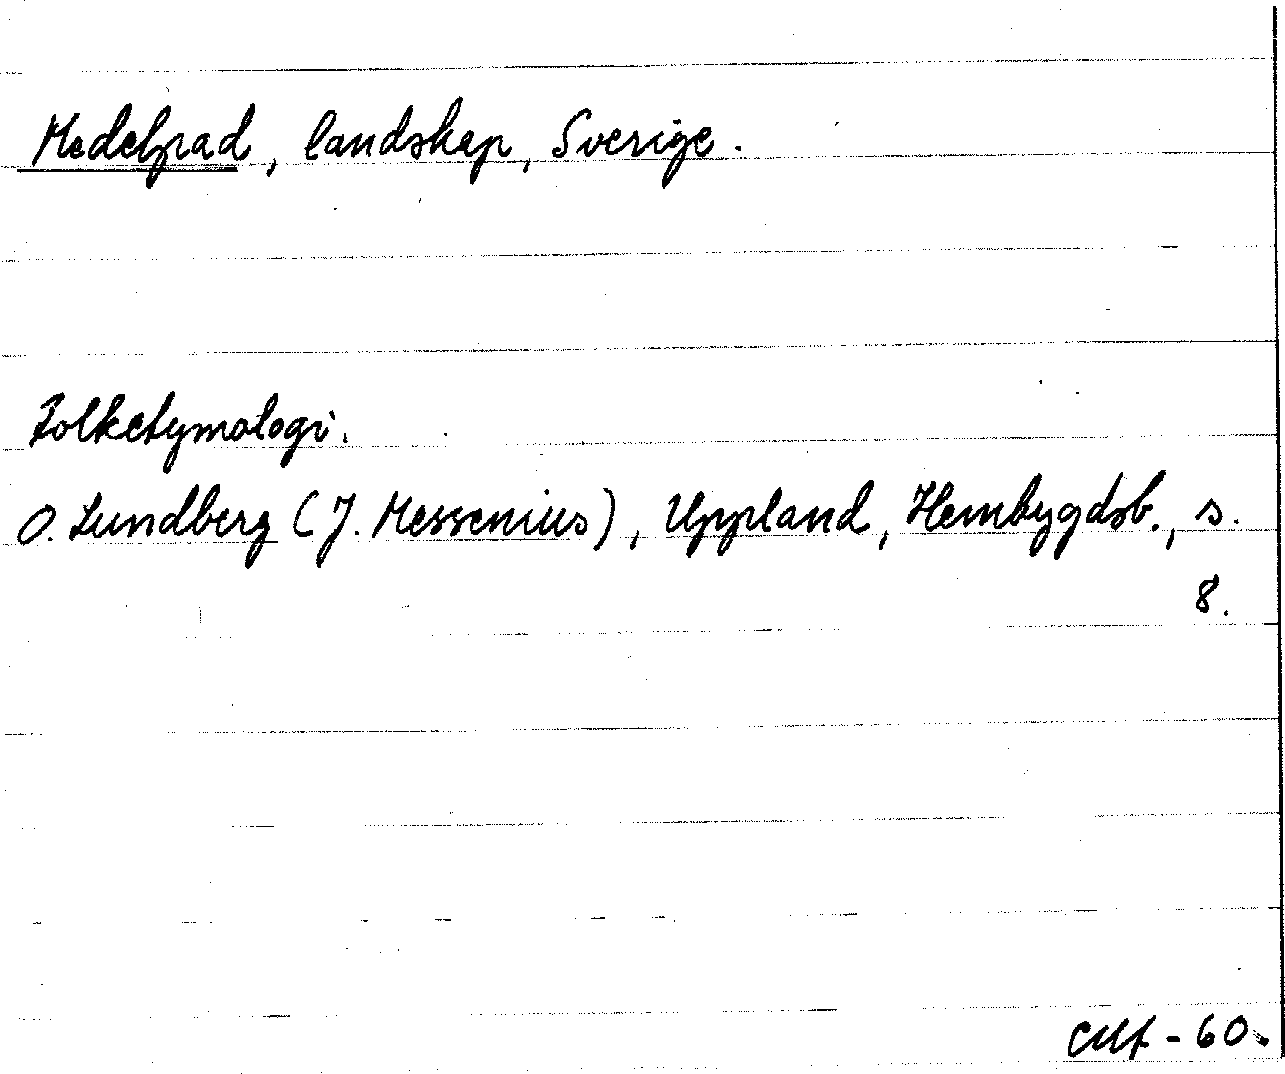 Medelpad, landskap, Sverige.
Folketymologi.
O. Lundberg (J. Messenius), Uppland, Hembygdsb., s.
8.
- 60.